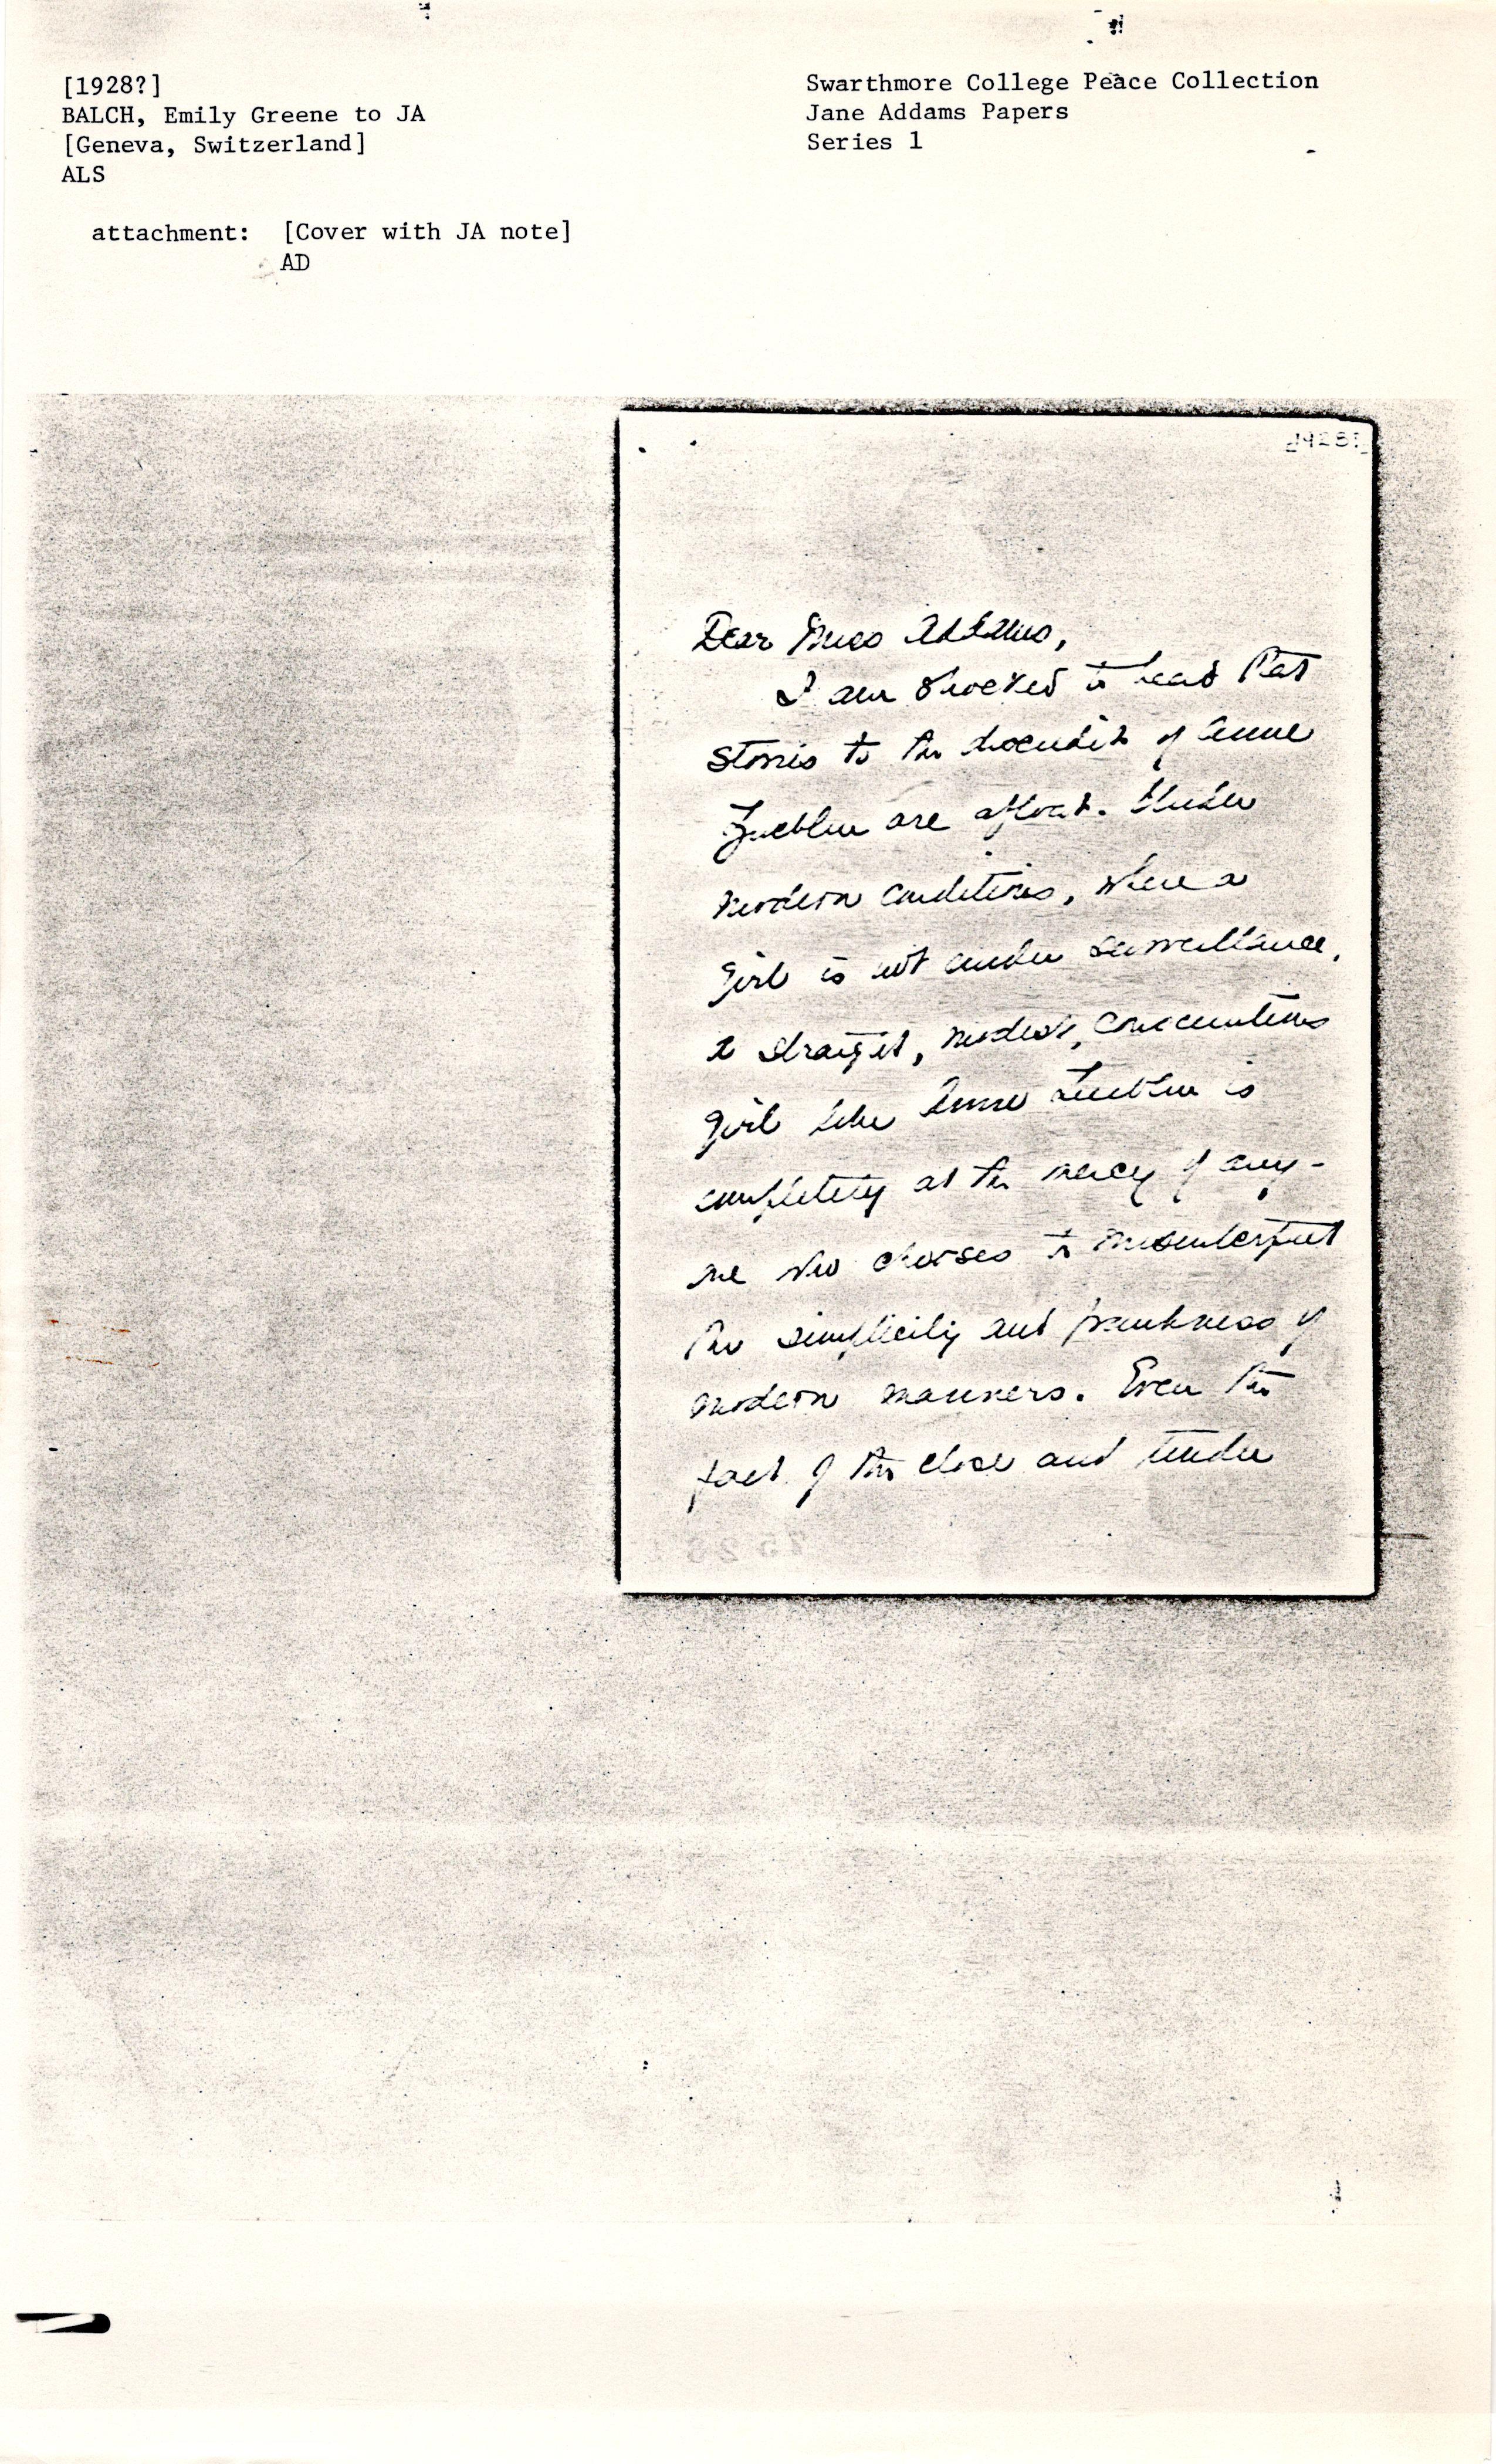 [1928?]
BALCH, Emily Greene to JA
[Geneva, Switzerland]
ALS
attachment: [Cover with JA note]
AD
Swarthmore College Peace Collection
Jane Addams Papers
Series 1
[1928?]
Dear Miss Addams,
I am shocked to hear that
stories to the discredit of Anne
Zueblin are afloat. Under
modern conditions, where a
girl is not under surveillance,
a straight, modest,
girl like Anne Zueblin is
completely at the mercy of any-
one who chooses to misinterpret
the simplicity and frankness of
modern manners. Even the
fact of the close and tender